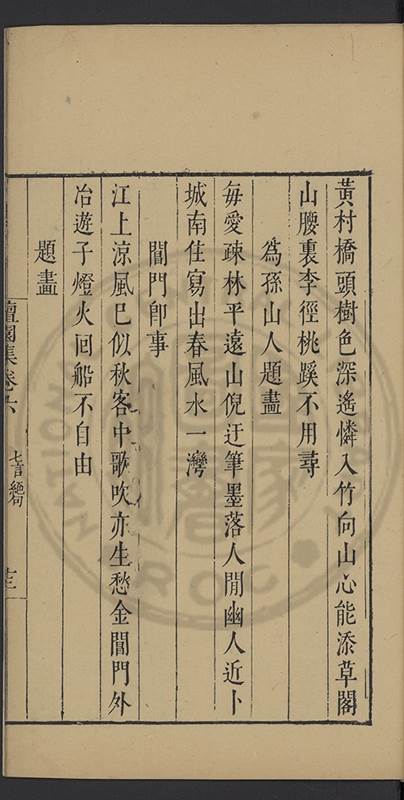 黃村橋頭樹色深遙憐入竹向山心能添草閣
山腰裏李徑桃蹊不用尋
爲孫山人題畫
每愛疎林平遠山倪迂筆墨落人閒幽人近卜
城南住寫出春風水一灣
閶門卽事
江上涼風已似秋客中歌吹亦生愁金閶門外
冶遊子燈火回船不自由
題畫
檀園集卷六 七言絕句 十三